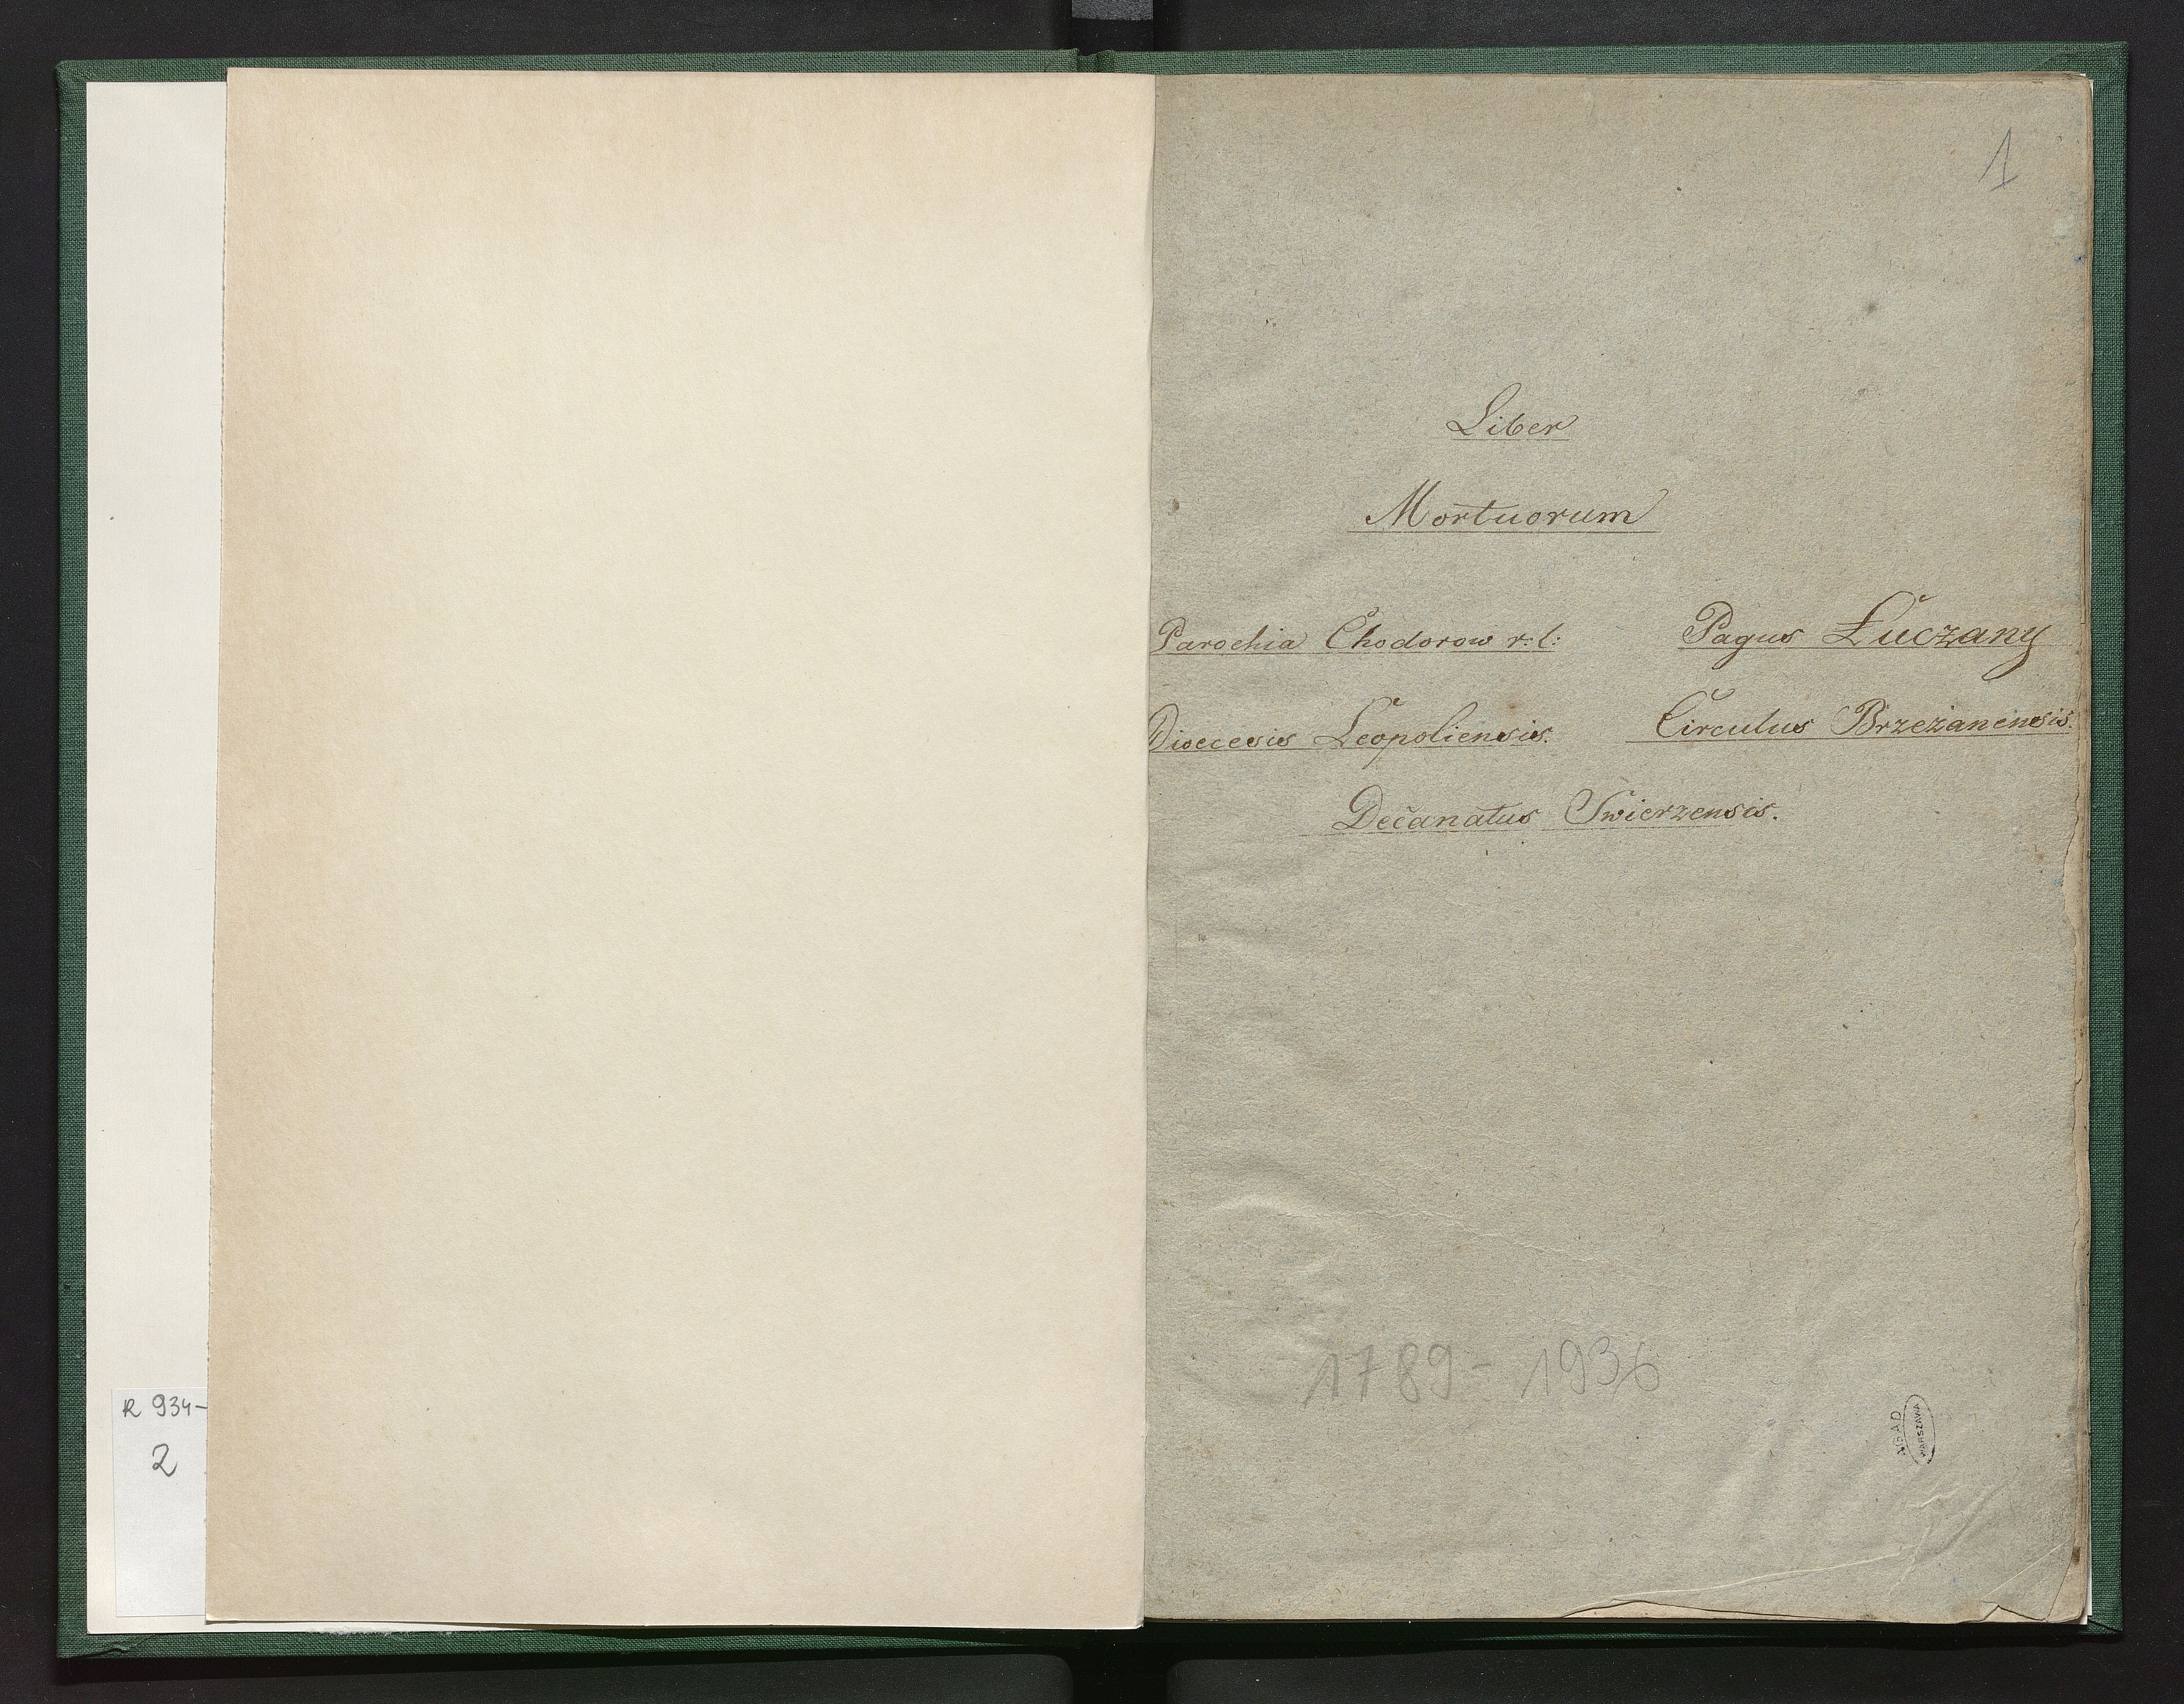 R 934-
2
1
Liber
Mortuorum
Parochia Chodorow r: l:
Pagus Łuczany
Dioecesis Leopoliensis.
Circulus Brzeżanensis.
Decanatus Swierzensis.
1789 - 1936
AGAD
WARSZAWA